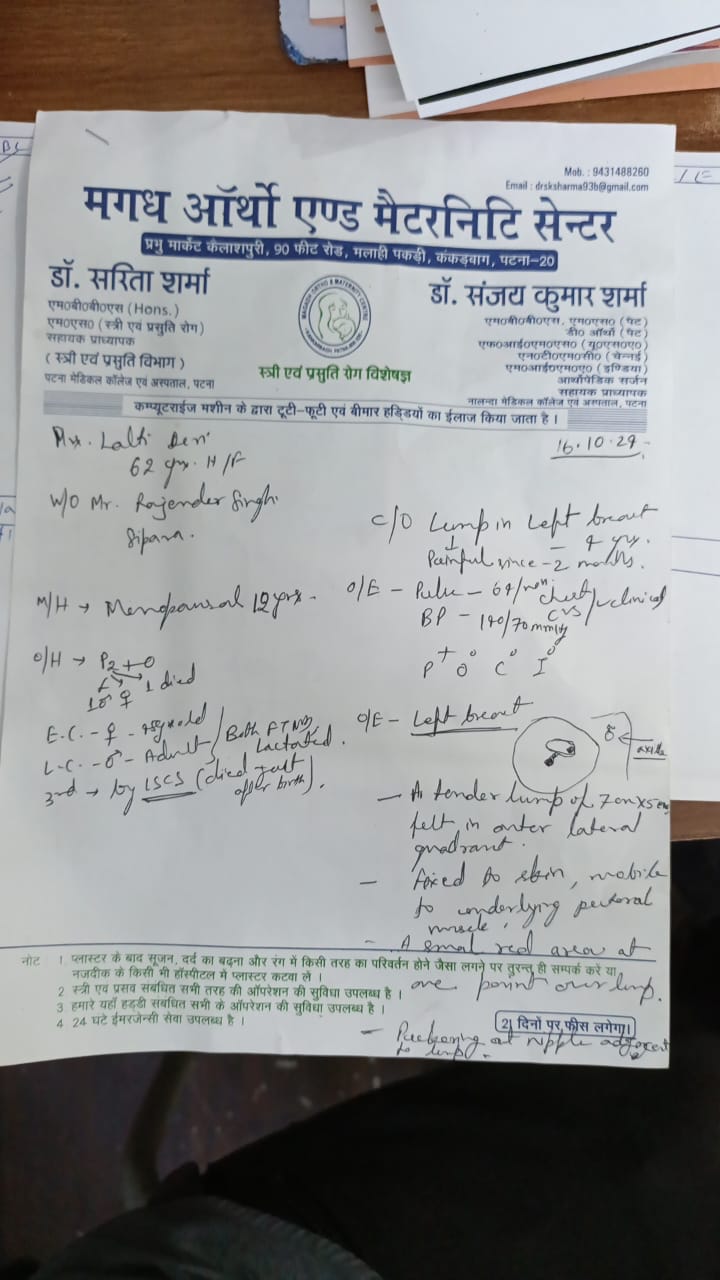 Mob. : 9431488260
Email : drsksharma93b@gmail.com
मगध ऑर्थो एण्ड मैटरनिटि सेन्टर
प्रभु मार्केट कैलाशपुरी, 90 फीट रोड, मलाही पकड़ी, कंकड़बाग, पटना-20
डॉ. सरिता शर्मा
एम0बी0बी0एस (Hons.)
एम0एस0 (स्त्री एवं प्रसुति रोग)
सहायक प्राध्यापक
( स्त्री एवं प्रसुति विभाग )
पटना मेडिकल कॉलेज एवं अस्पताल, पटना
स्त्री एवं प्रसुति रोग विशेषज्ञ
डॉ. संजय कुमार शर्मा
एम0बी0बी0एस, एम0एस0 (पैट)
डी0 ऑर्थो (पैट)
एफ0आई0एम0एस0 (यू0एस0ए0)
एन0टी0एम0सी0 (चेन्नई)
एम0आई0एम0ए0 (इण्डिया)
आर्थोपेडिक सर्जन
सहायक प्राध्यापक
नालन्दा मेडिकल कॉलेज एवं अस्पताल, पटना
कम्प्यूटराईज मशीन के द्वारा टूटी-फूटी एवं बीमार हड्डियों का ईलाज किया जाता है ।
Lalti Devi
62 yrs. H/F
W/O Mr. Rajender Singh.
Sipara.
M/H → Menopausal 12 yrs -
O/H → P2+0
1 died
E.C. - ♀ -
L.C. - ♂ - Adult / Both FTND, Lactated.
3rd → by LSCS (died just after birth).
16.10.24
C/O Lump in Left breast
- 4 yrs.
Painful since - 2 months.
O/E - Pulse - 64/min
BP - 140/70 mmHg
Chest / CVS clinical
P+ O° C° I°
O/E - Left breast
axilla
- A tender lump of 7cm x 5cm
felt in outer lateral
quadrant.
- fixed to skin, mobile
to underlying pectoral
muscle.
- A small red area at
one point over lump.
- Puckering at nipple adjacent
to lump.
नोट 1. प्लास्टर के बाद सूजन, दर्द का बढ़ना और रंग में किसी तरह का परिवर्तन होने जैसा लगने पर तुरन्त ही सम्पर्क करे या
नजदीक के किसी भी हॉस्पीटल में प्लास्टर कटवा ले ।
2 स्त्री एवं प्रसव संबंधित सभी तरह की ऑपरेशन की सुविधा उपलब्ध है ।
3 हमारे यहाँ हड्डी संबंधित सभी के ऑपरेशन की सुविधा उपलब्ध है ।
4 24 घंटे ईमरजेन्सी सेवा उपलब्ध है ।
21 दिनों पर फीस लगेगा।